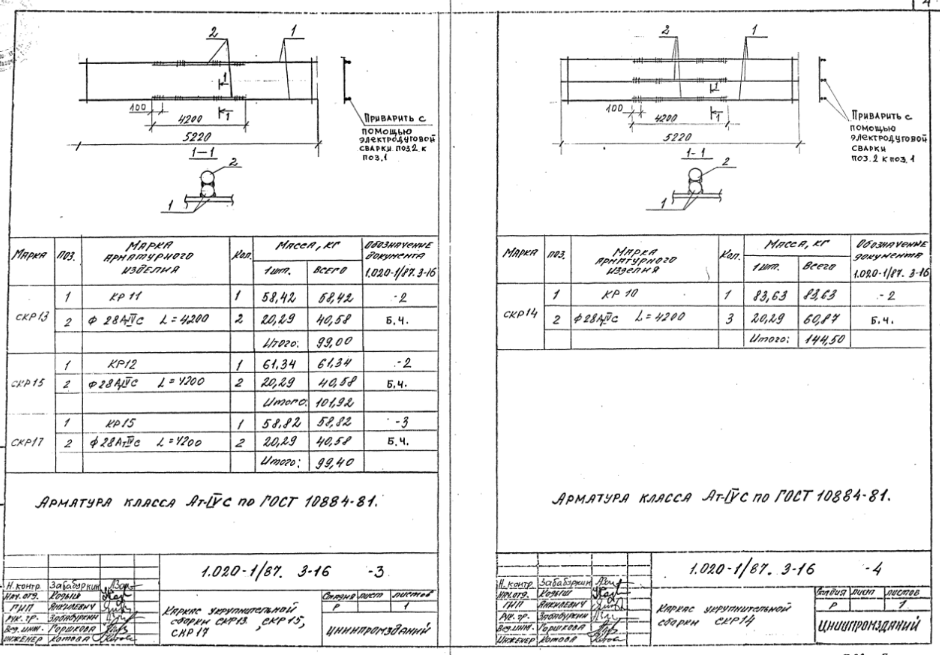 4
2 1
1
1
100
4200
5220
1-1
2
1
Приварить с
помощью
электродуговой
сварки поз.2 к
поз.1
Марка Поз. Марка арматурного изделия Кол. Масса, кг Обозначение документа
1 шт. Всего 1.020-1/87. 3-16
СКР13 1 КР11 1 58,42 58,42 -2
2 Ф 28АтIVС L=4200 2 20,29 40,58 Б.ч.
Итого: 99,00
СКР15 1 КР12 1 61,34 61,34 -2
2 Ф 28АтIVС L=4200 2 20,29 40,58 Б.ч.
Итого: 101,92
СКР17 1 КР15 1 58,82 58,82 -3
2 Ф 28АтIVС L=4200 2 20,29 40,58 Б.ч.
Итого: 99,40
Арматура класса Ат-IVС по ГОСТ 10884-81.
1.020-1/87. 3-16 -3
Н.контр. Забабуркин
Нач.отд.
ГИП
Рук. гр. Забабуркин
Вед.инж. Горшкова
Инженер Котова
Каркас укрупнительной
сборки СКР13, СКР15,
СКР17
Стадия Лист Листов
Р 1
ЦНИИПРОМЗДАНИЙ
2 1
1
1
100
4200
5220
1-1
2
1
Приварить с
помощью
электродуговой
сварки
поз.2 к поз.1
Марка Поз. Марка арматурного изделия Кол. Масса, кг Обозначение документа
1 шт. Всего 1.020-1/87. 3-16
СКР14 1 КР 10 1 83,63 83,63 -2
2 Ф28АтIVС L=4200 3 20,29 60,87 Б.ч.
Итого: 144,50
Арматура класса Ат-IVС по ГОСТ 10884-81.
1.020-1/87. 3-16 -4
Н.контр. Забабуркин
Нач.отд.
ГИП
Рук. гр. Забабуркин
Вед.инж. Горшкова
Инженер Котова
Каркас укрупнительной
сборки СКР14
Стадия Лист Листов
Р 1
ЦНИИПРОМЗДАНИЙ